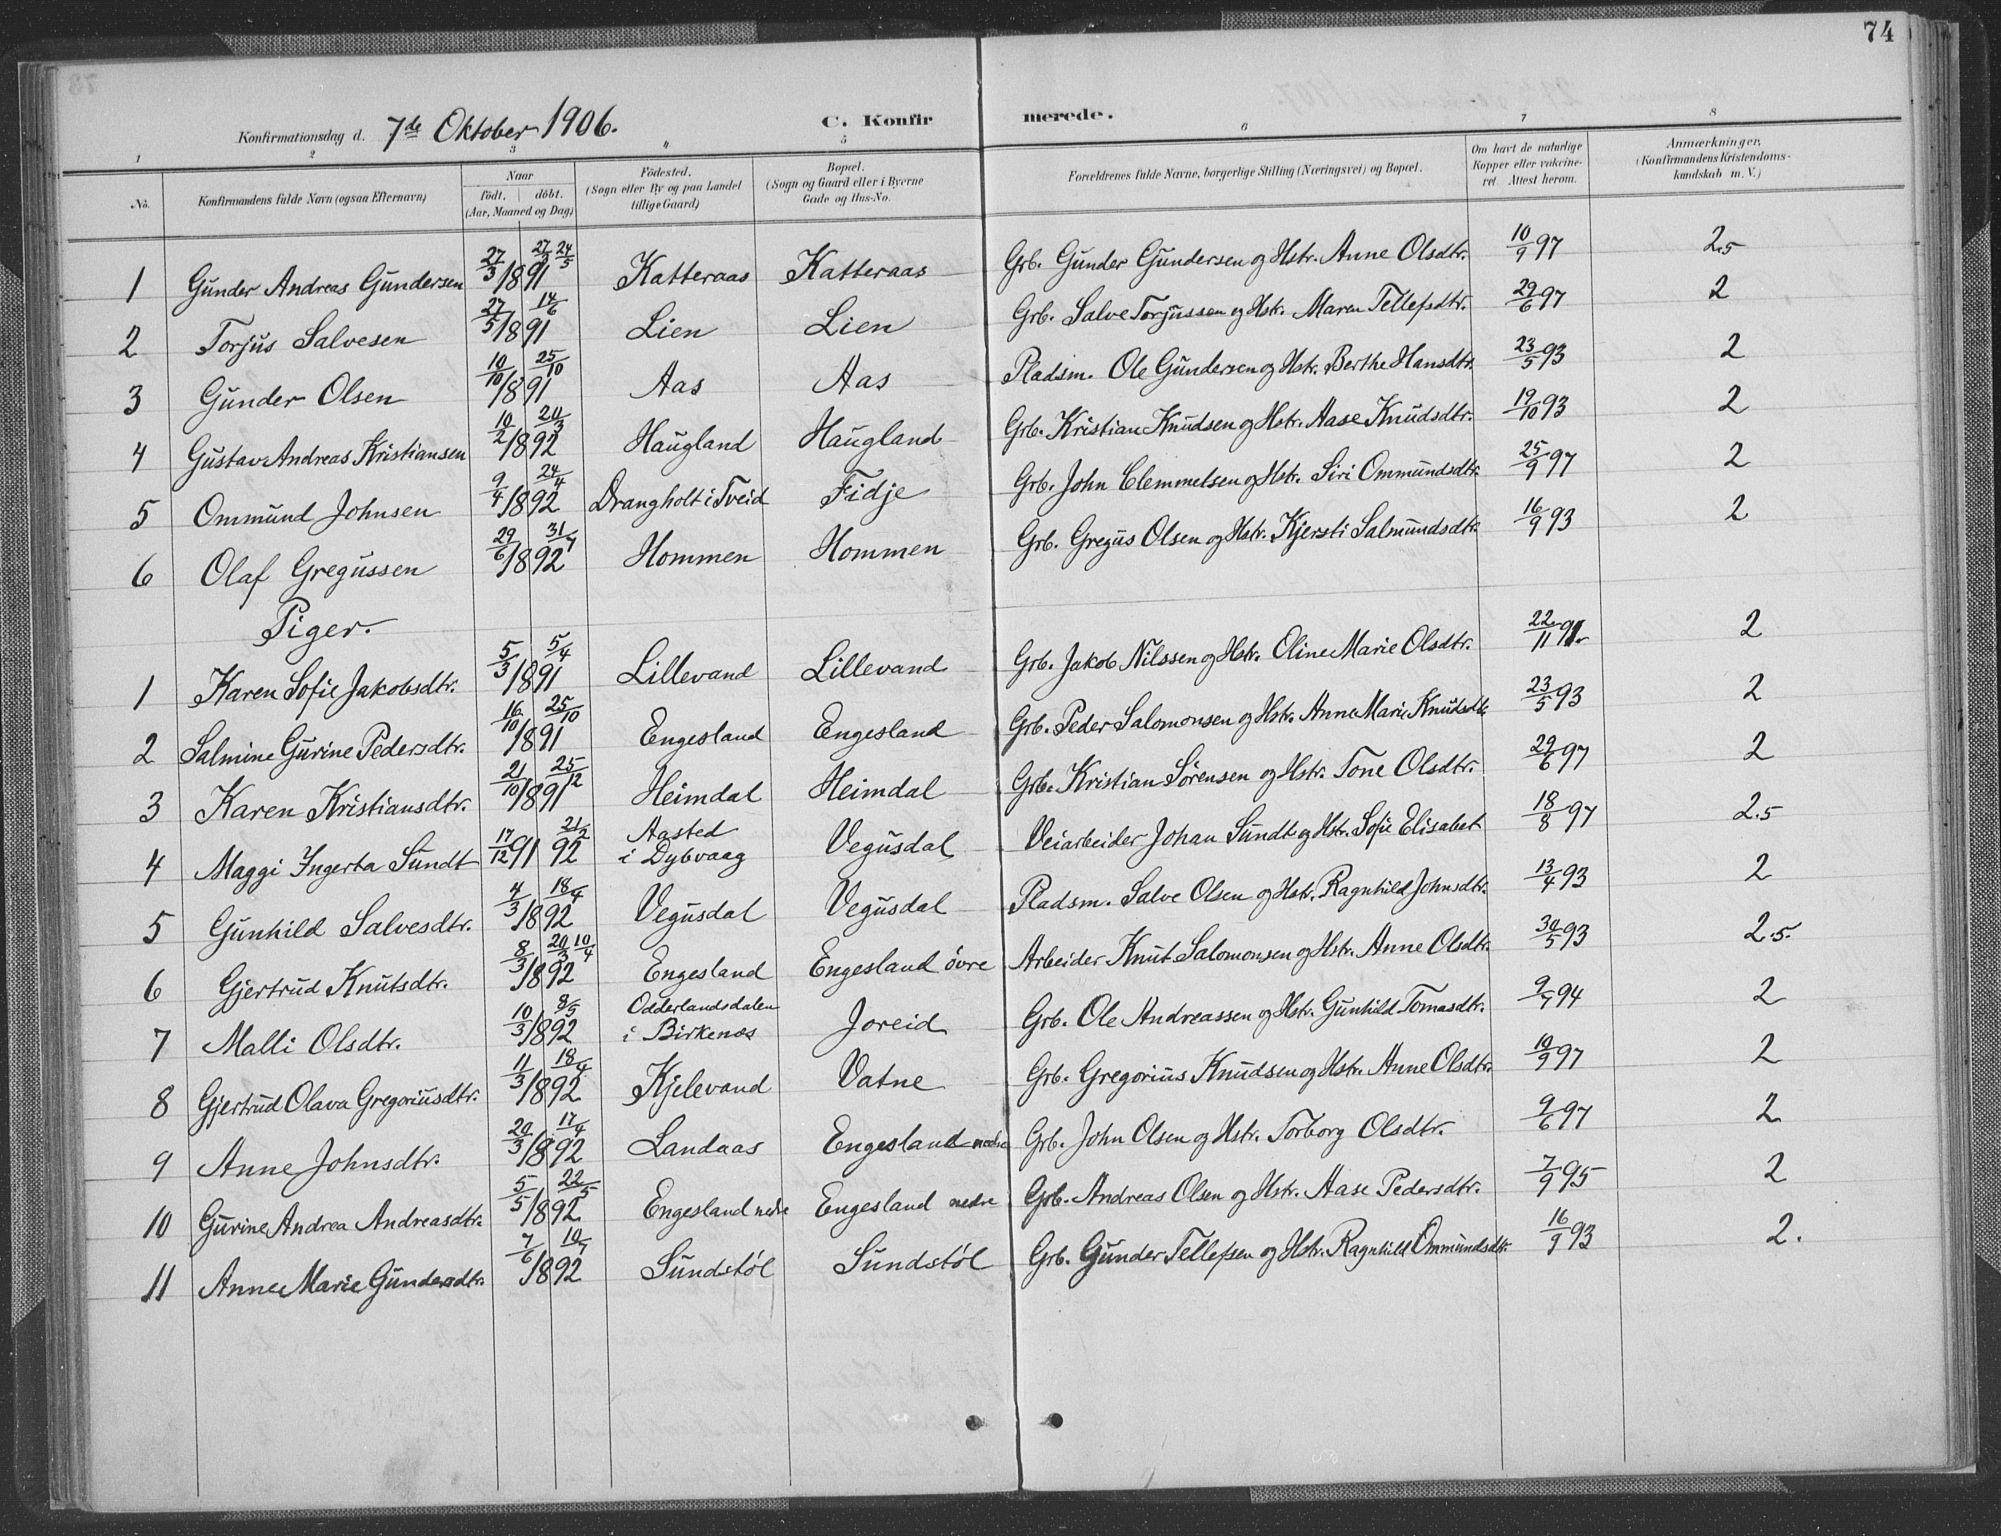 74
Konfirmationsdag d. 7de Oktober 1906. C. Konfirmerede.
1 2 3 4 5 6 7 8
No. Konfirmandens fulde Navn (ogsaa Efternavn) Naar født, døbt. (Aar, Maaned og Dag) Fødested. (Sogn eller By og paa Landet tillige Gaard) Bopæl. (Sogn og Gaard eller i Byerne Gade og Hus-No. Forældrenes fulde Navne, borgerlige Stilling (Næringsvei) og Bopæl. Om havt de naturlige Kopper eller vakcineret. Attest herom. Anmærkninger. (Konfirmandens Kristendomskundskab m. V.)
1 Gunder Andreas Gundersen 27/3 1891 27/3 24/5 Katteraas Katteraas Grb. Gunder Gundersen og Hstr. Anne Olsdtr. 10/9 97 2.5
2 Torjus Salvesen 27/5 1891 14/6 Lien Lien Grb. Salve Torjussen og Hstr. Maren Tellefsdtr. 29/6 97 2
3 Gunder Olsen 10/10 1891 25/10 Aas Aas Pladsm. Ole Gundersen og Hstr. Berthe Hansdtr. 23/5 93 2
4 Gustav Andreas Kristiansen 10/2 1892 20/3 Haugland Haugland Grb. Kristian Knudsen og Hstr. Aase Knudsdtr. 19/10 93 2
5 Ommund Johnsen 9/4 1892 24/4 Drangholt i Tveid Fidje Grb. John Clemmetsen og Hstr. Siri Ommundsdtr. 25/9 97 2
6 Olaf Gregussen 29/6 1892 31/7 Hommen Hommen Grb. Gregus Olsen og Hstr. Kjersti Salmundsdtr. 16/9 93 2
Piger.
1 Karen Sofie Jakobsdtr. 5/3 1891 5/4 Lillevand Lillevand Grb. Jakob Nilssen og Hstr. Oline Marie Olsdtr. 22/11 91. 2
2 Salmine Gurine Pedersdtr. 16/10 1891 25/10 Engesland Engesland Grb. Peder Salomonsen og Hstr. Anne Marie Knudsdtr. 23/5 93 2
3 Karen Kristiansdtr. 21/10 1891 25/12 Heimdal Heimdal Grb. Kristian Sørensen og Hstr. Tone Olsdtr. 29/6 97 2
4 Maggi Ingerta Sundt 17/12 91 21/2 92 Aasted i Dybvaag Vegusdal Veiarbeider Johan Sundt og Hstr. Sofie Elisabet 18/8 97 2.5
5 Gunhild Salvesdtr. 4/3 1892 18/4 Vegusdal Vegusdal Pladsm. Salve Olsen og Hstr. Ragnhild Johnsdtr. 13/4 93 2
6 Gjertrud Knutsdtr. 8/3 1892 20/3 10/4 Engesland Engesland øvre Arbeider Knut Salomonsen og Hstr. Anne Olsdtr. 30/5 93 2.5.
7 Malli Olsdtr. 10/3 1892 8/5 Odderlandsdalen i Birkenæs Joreid Grb. Ole Andreassen og Hstr. Gunhild Tomasdtr. 9/7 94 2
8 Gjertrud Olava Gregoriusdtr. 11/3 1892 18/4 Kjelevand Vatne Grb. Gregorius Knudsen og Hstr. Anne Olsdtr. 10/9 97 2
9 Anne Johnsdtr. 20/3 1892 17/4 Landaas Engesland nedre Grb. John Olsen og Hstr. Torborg Olsdtr. 9/6 97 2
10 Gurine Andrea Andreasdtr. 5/5 1892 22/5 Engesland nedre Engesland nedre Grb. Andreas Olsen og Hstr. Aase Pedersdtr. 7/9 95 2
11 Anne Marie Gundersdtr. 7/6 1892 10/7 Sundstøl Sundstøl Grb. Gunder Tellefsen og Hstr. Ragnhild Ommundsdtr. 16/9 93 2.